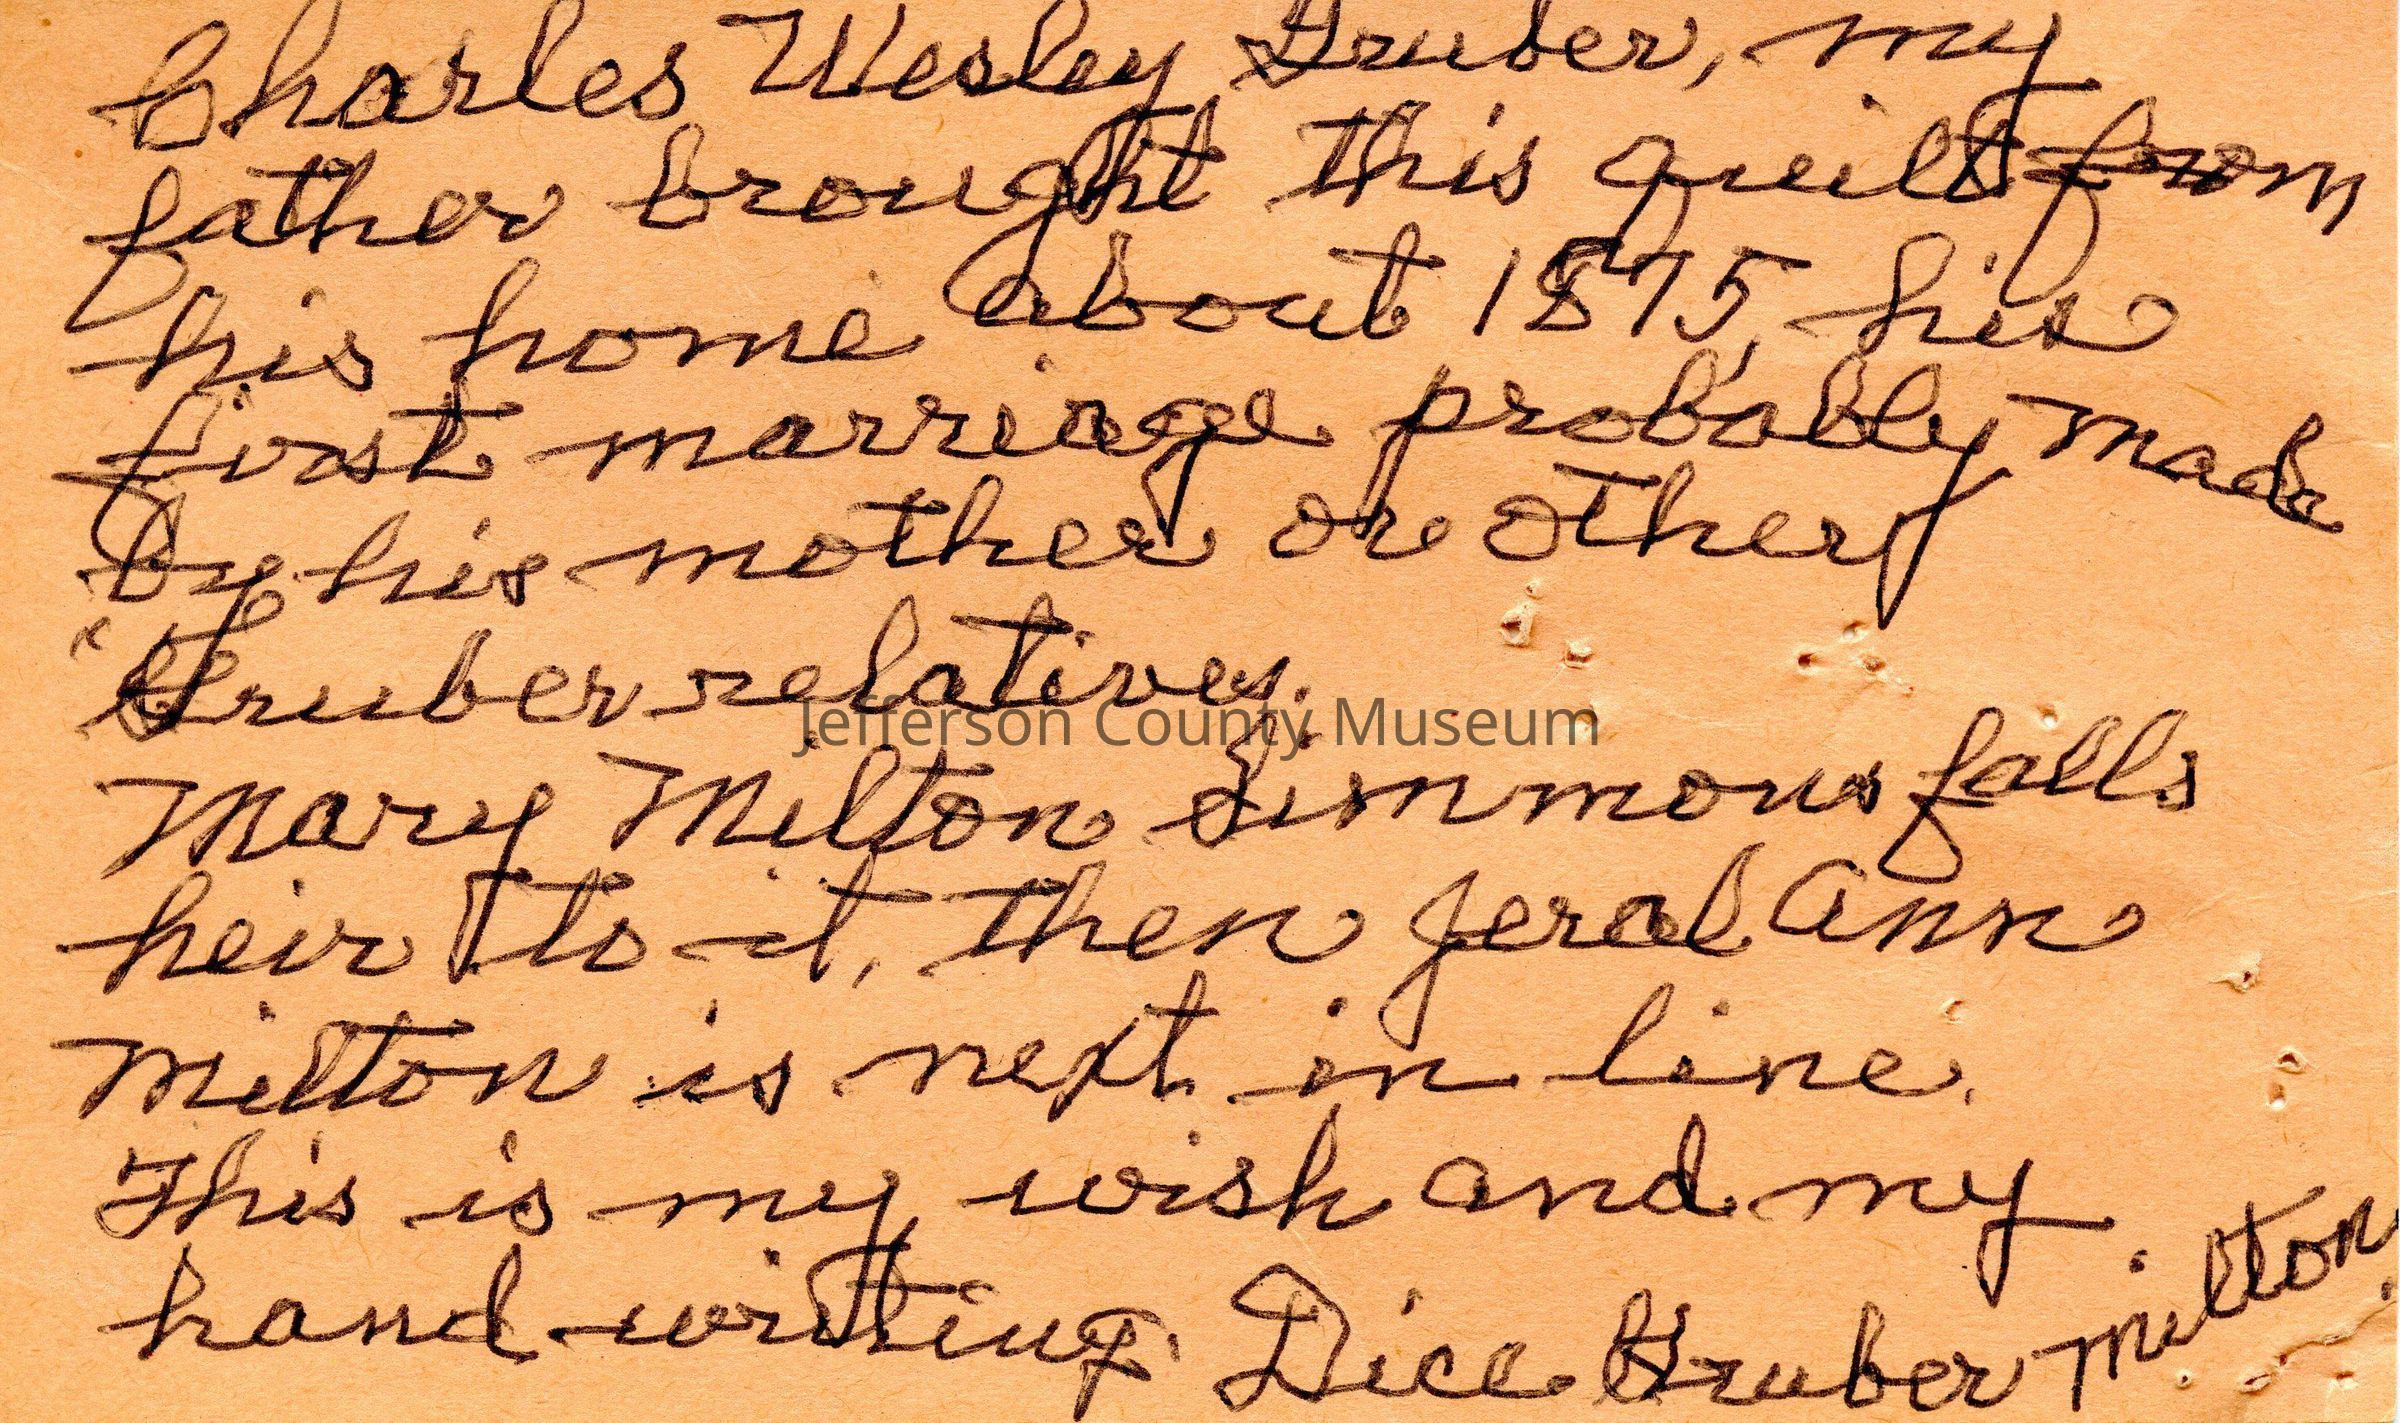 Charles Wesley Gruber, my
father brought this quilt from
his home about 1875, his
first marriage probably made
by his mother or other
Gruber relatives.
Jefferson County Museum
Mary Milton Simmons falls
heir to it, then Jeral Ann
Milton is next in line.
This is my wish and my
hand writing. Dice Gruber Milton